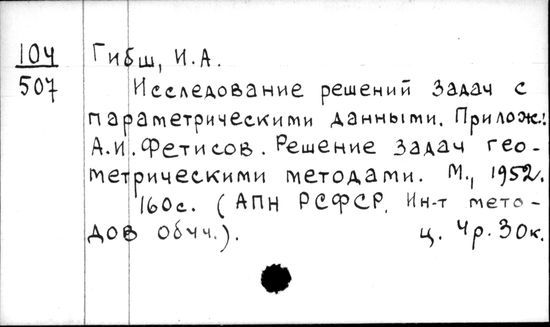 104 Гибш, И.А.
507 Исследование решений задач с
параметрическими данными. Прилож.:
А.И. Фетисов. Решение задач гео-
метрическими методами. М., 1952.
160с. (АПН РСФСР. Ин-т мето-
дов обуч.). ц. 4р. 30к.